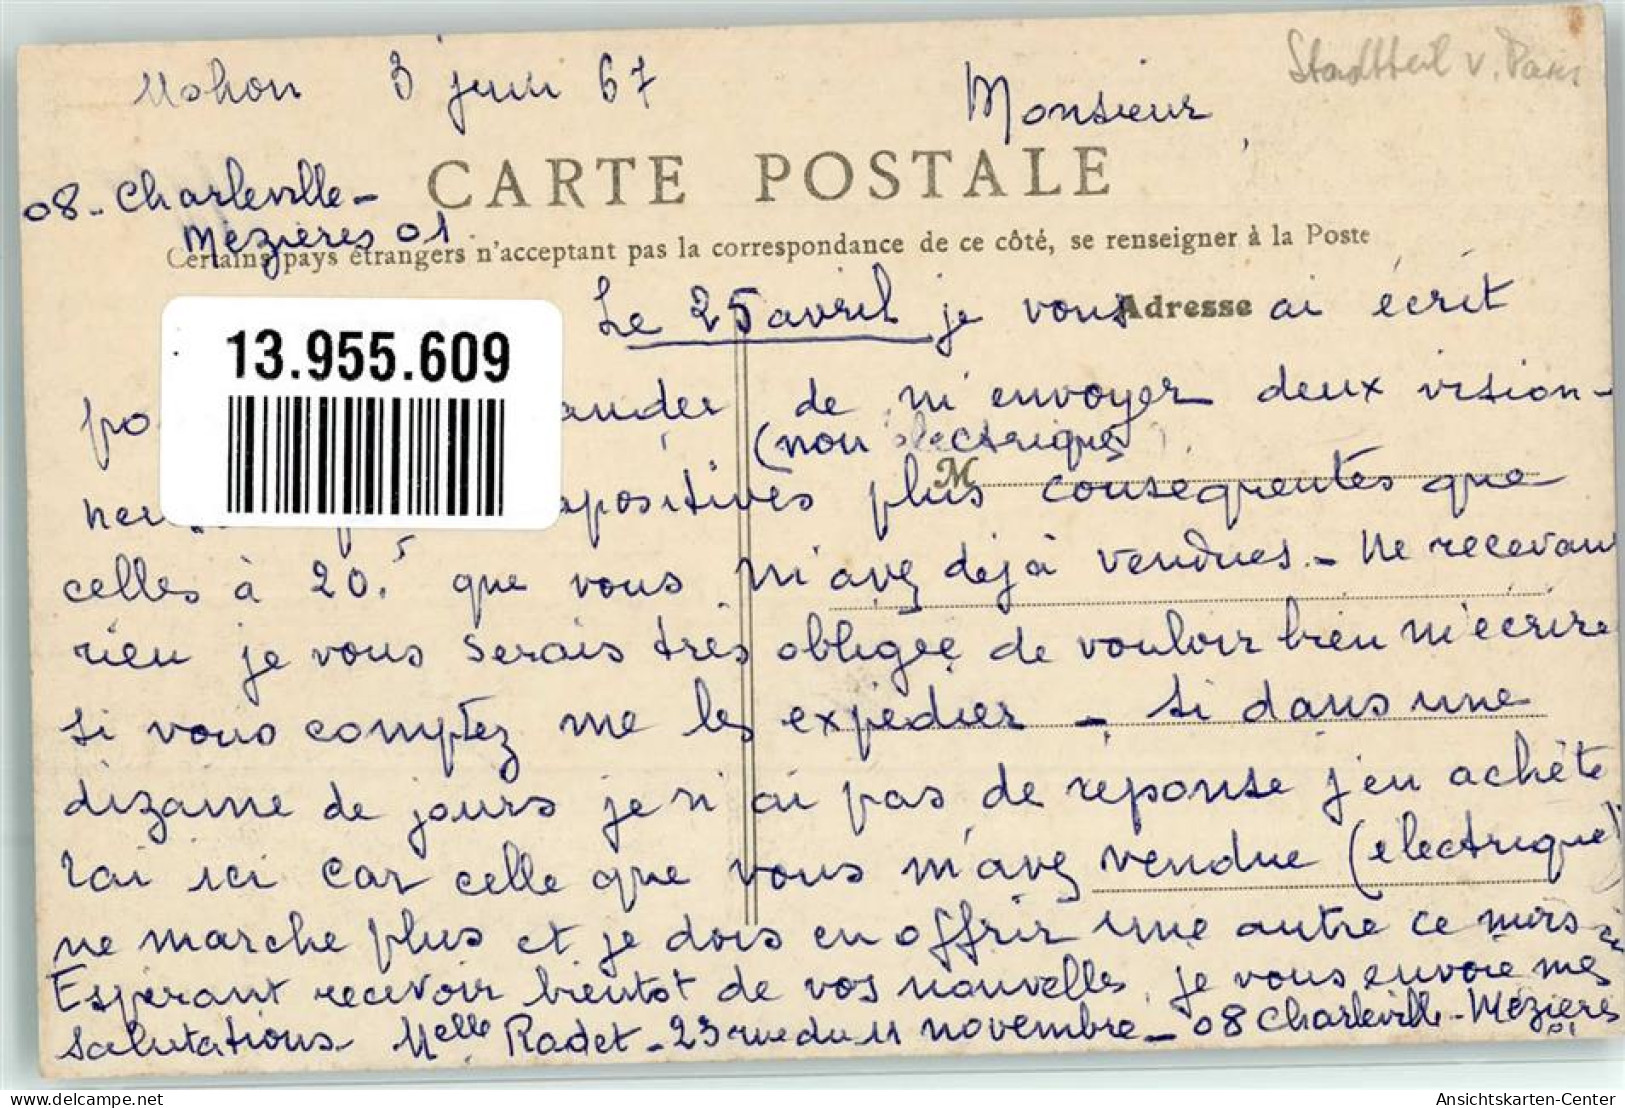 Stadtteil v. Paris
Mohon 3 juin 67
Monsieur,
08 - Charleville-
Mézières 01
CARTE POSTALE
Certains pays étrangers n'acceptant pas la correspondance de ce côté, se renseigner à la Poste
Adresse
Le 25 avril je vous ai écrit
13.955.609
de m'envoyer deux vision-
(non électriques)
M
plus conséquentes que
celles à 20. que vous m'avez déjà vendues. - Ne recevant
rien je vous serais très obligée de vouloir bien m'écrire
si vous comptez me les expédier - Si dans une
dizaine de jours je n'ai pas de réponse j'en achète
rai ici car celle que vous m'avez vendue (électrique)
ne marche plus et je dois en offrir une autre ce mois ci
Espérant recevoir bientôt de vos nouvelles, je vous envoie mes
salutations. Melle Radet - 23 rue du 11 novembre - 08 Charleville-Mézières
01
oldthing.de
Ansichtskarten-Center